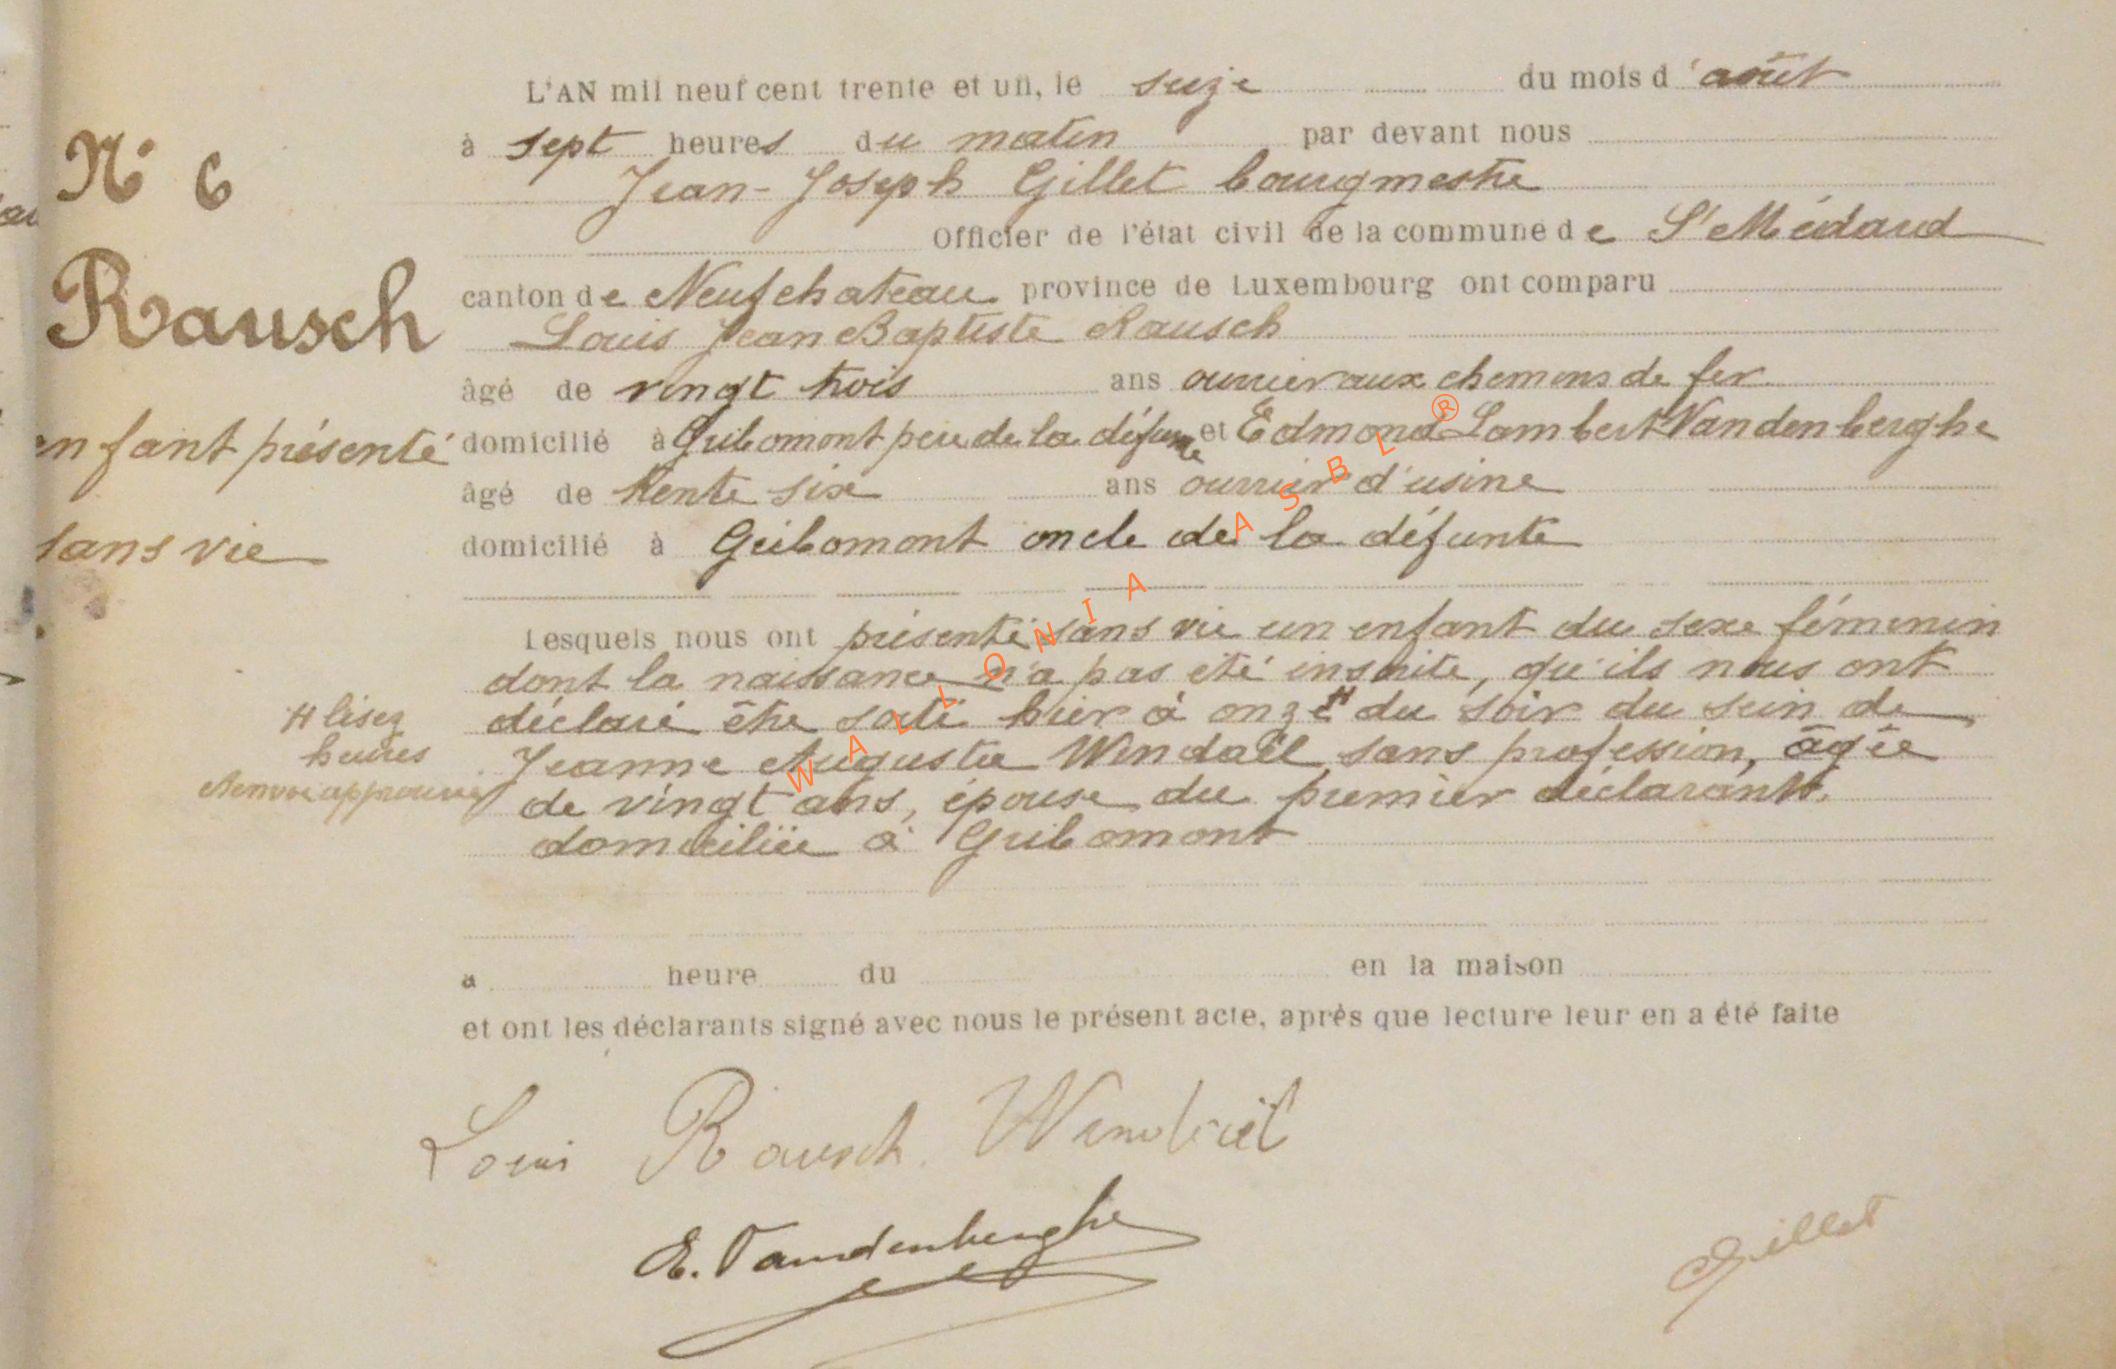 L'AN mil neuf cent trente et un, le seize du mois d'août
N° 6
à sept heures du matin par devant nous
Jean-Joseph Gillet bourgmestre
Officier de l'état civil de la commune de St Médard
Rausch
canton de Neufchateau province de Luxembourg ont comparu
Louis Jean Baptiste Rausch
âgé de vingt trois ans ouvrier aux chemins de fer
enfant présenté
domicilié à Gribomont père de la défunte et Edmond Lambert Vandenberghe
âgé de trente six ans ouvrier d'usine
sans vie
domicilié à Gribomont oncle de la défunte
Lesquels nous ont présenté sans vie un enfant du sexe féminin
dont la naissance n'a pas été inscrite, qu'ils nous ont
déclaré être sorti hier à onze H du soir du sein de
H lisez
heures
Renvoi approuvé
Jeanne Augusta Windail sans profession, âgée
de vingt ans, épouse du premier déclarant
domiciliée à Gribomont
à heure du en la maison
et ont les déclarants signé avec nous le présent acte, après que lecture leur en a été faite
Louis Rausch
E. Vandenberghe
Gillet
WALLONIA ASBL ®